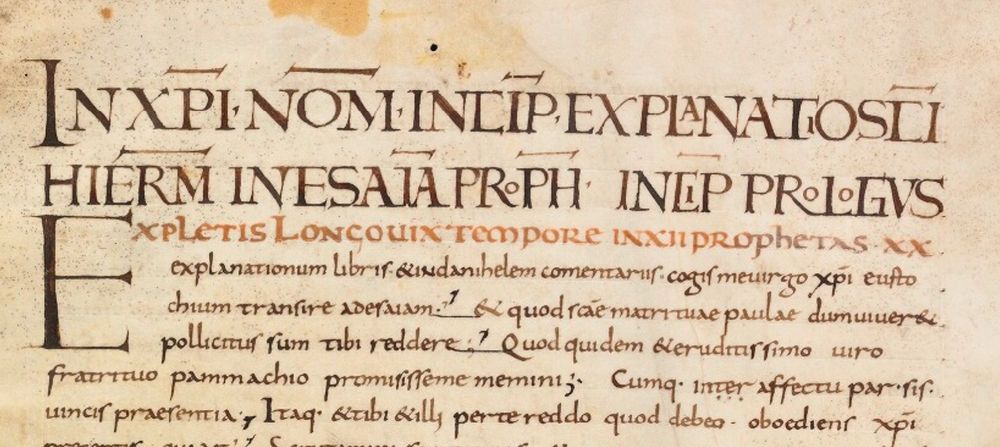 IN XPI · NOM · INCIP · EXPLANATIO SCI
HIERM IN ESAIA PROPH · INCIP PROLOGUS
Expletis Longo uix tempore in xii prophetas xx
explanationum libris · & in danihelem comentariis · cogis me uirgo xpi eusto
chium transire ad esaiam · & quod scae matri tuae paulae dum uiuer&
pollicitus sum tibi reddere · Quod quidem & eruditissimo uiro
fratri tuo pammachio promisisse me memini; Cumq· inter affectu par · sis ·
uincis praesentia · Itaq · & tibi & illi per te reddo quod debeo · oboediens xpi